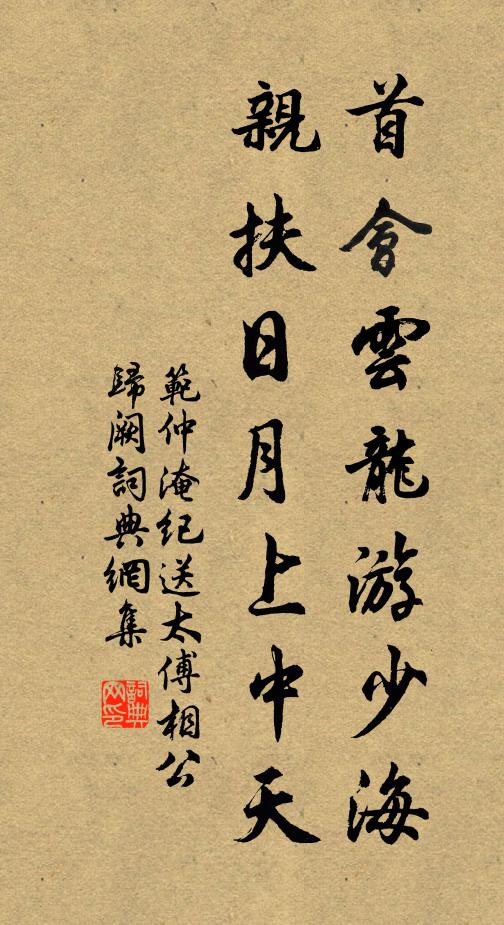 首會雲龍游少海
親扶日月上中天
範仲淹紀送太傅相公
歸闕詞典網集
詞典
网印